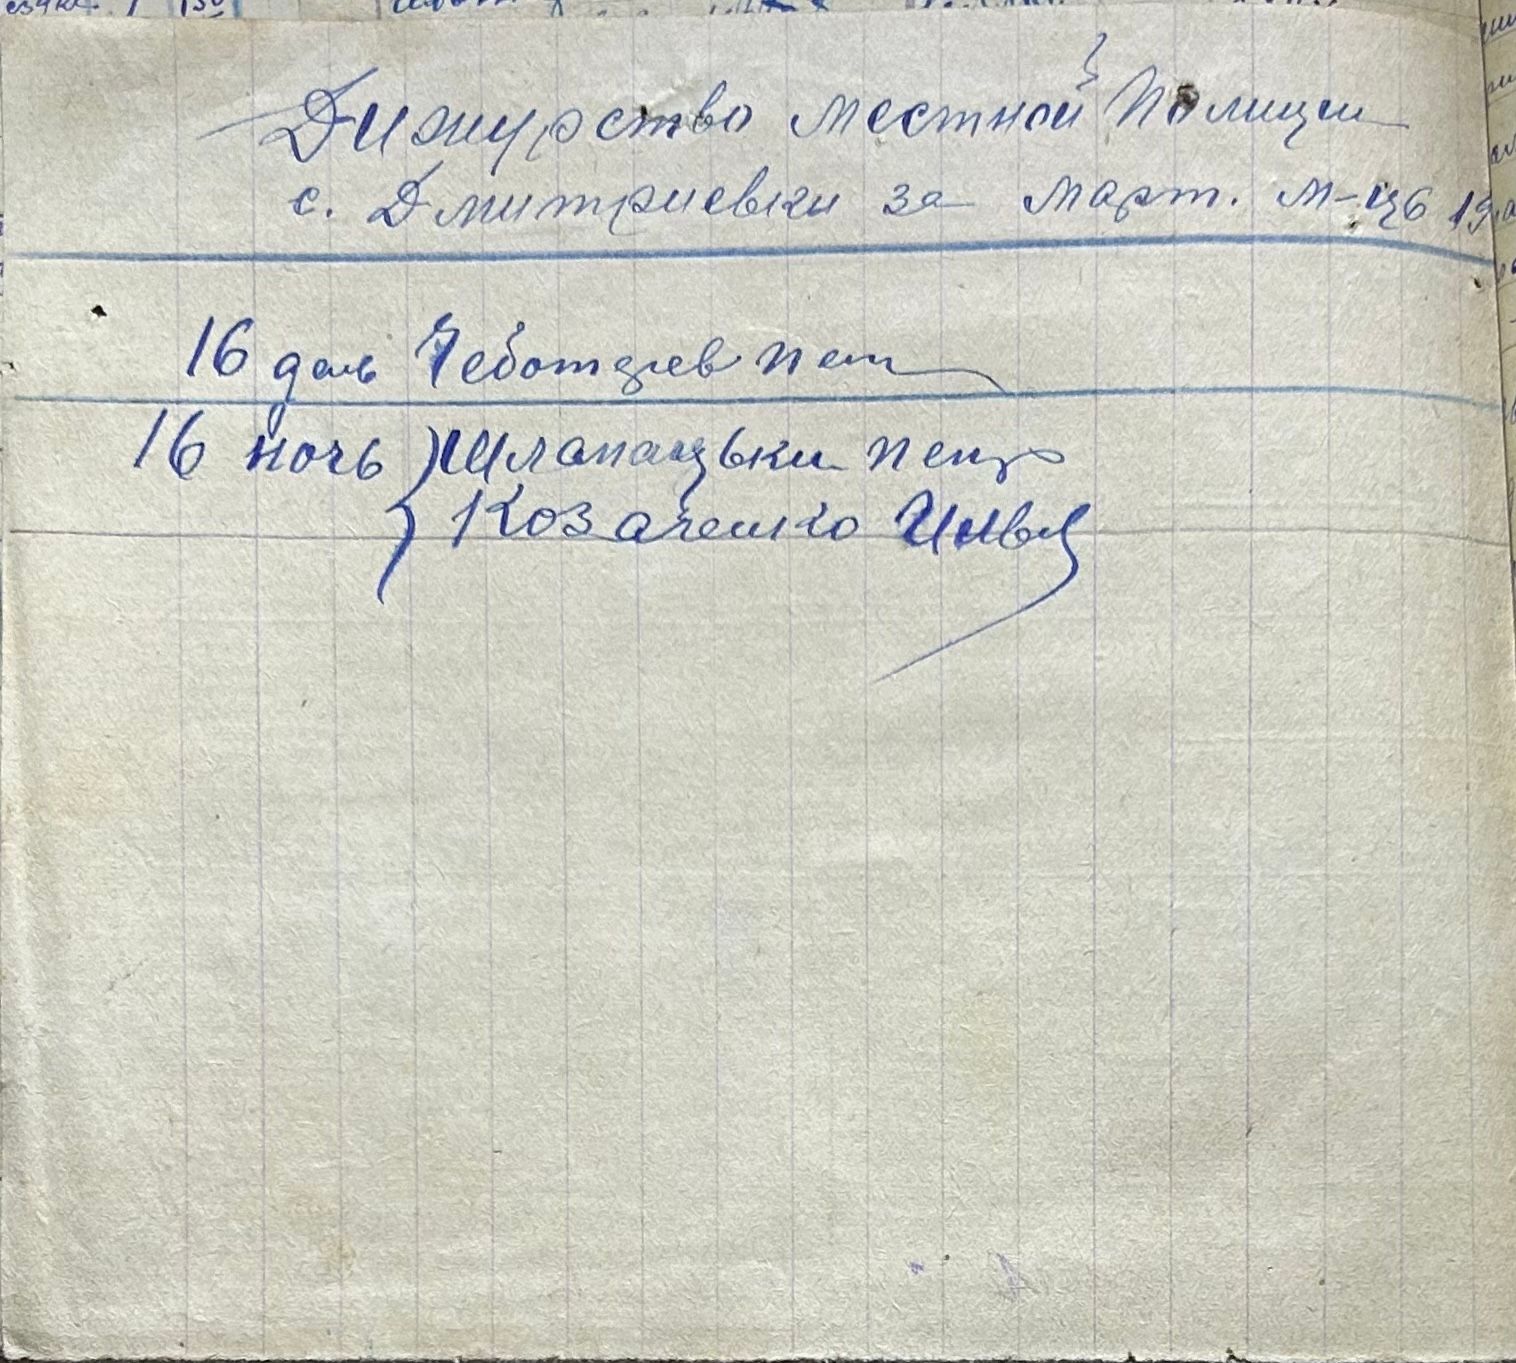 Дижурство местной Полиции
с. Дмитриевки за март. м-ць 19
16 день Чеботарев Пет
16 ночь Шлапацьки Петр
Козаченко